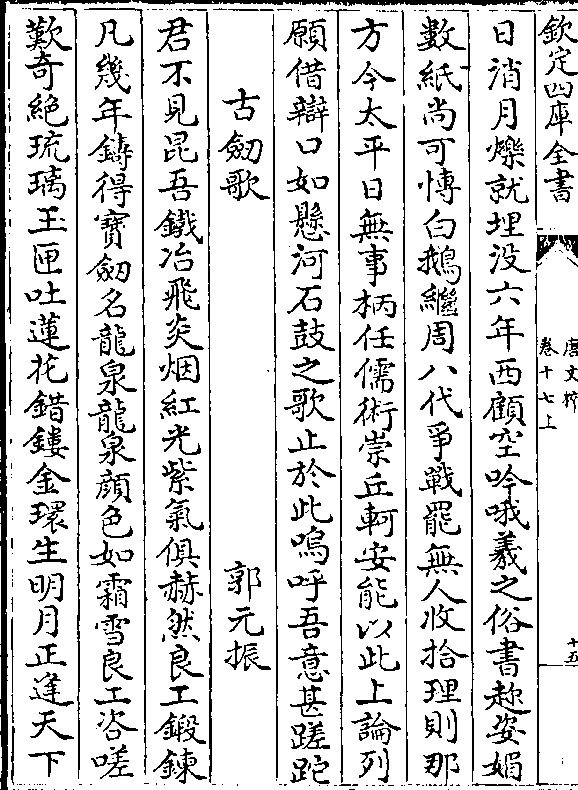 欽定四庫全書
唐文粹
卷十七上
十五
日消月爍就埋没六年西顧空吟哦羲之俗書趂姿媚
數紙尚可慱白鵝繼周八代爭戰罷無人收拾理則那
方今太平日無事柄任儒術崇丘軻安能以此上論列
願借辯口如懸河石鼓之歌止於此嗚呼吾意甚蹉跎
古劒歌 郭元振
君不見昆吾鐵冶飛炎烟紅光紫氣俱赫然良工鍛鍊
凡幾年鑄得寳劒名龍泉龍泉顔色如霜雪良工咨嗟
歎奇絶琉璃玉匣吐蓮花錯鏤金環生明月正逢天下